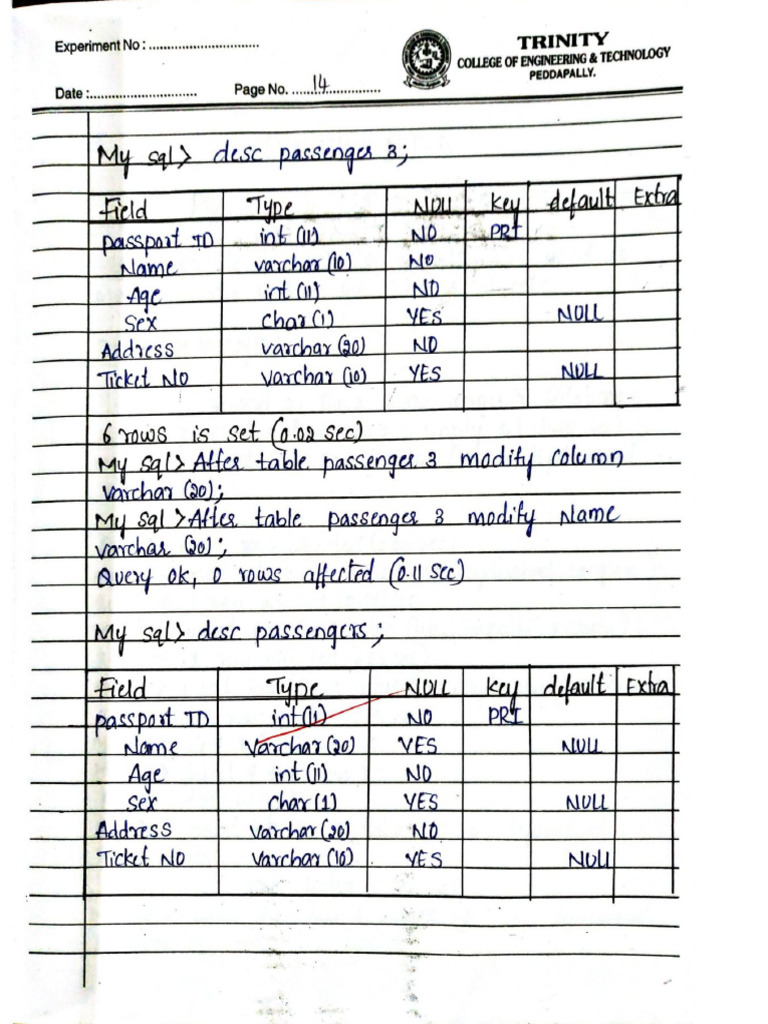 Experiment No : ..............................
TRINITY
COLLEGE OF ENGINEERING & TECHNOLOGY
PEDDAPALLY.
Date :............................. Page No. .......14..............
My sql> desc passenger 3;
Field Type NUll Key default Extra
passport ID int (11) NO PRI
Name varchar (10) NO
Age int (11) NO
Sex char (1) YES NULL
Address varchar (20) NO
Ticket NO varchar (10) YES NULL
6 rows is set (0.02 sec)
My sql> Alter table passenger 3 modify column
varchar (20);
My sql >Alter table passenger 3 modify Name
varchar (20);
Query ok, 0 rows affected (0.11 sec)
My sql> desc passengers;
Field Type NULL Key default Extra
passport ID int (11) NO PRI
Name varchar (20) YES NULL
Age int (11) NO
Sex char (1) YES NULL
Address varchar (20) NO
Ticket NO varchar (10) YES NULL